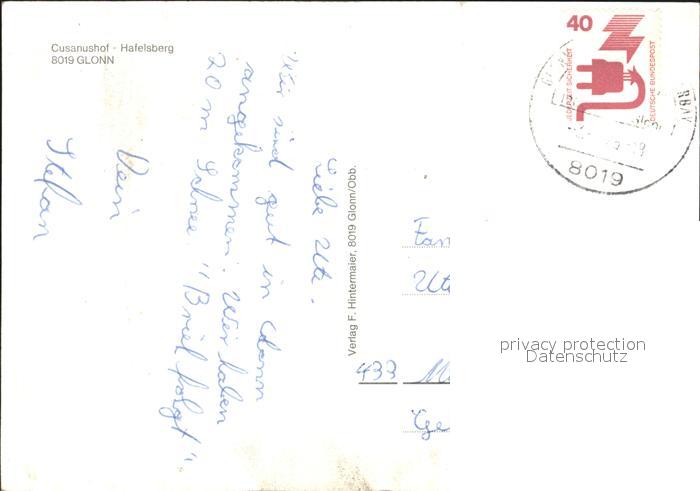 Cusanushof - Hafelsberg
8019 GLONN
Liebe Ute.
Wir sind gut in Glonn
angekommen. Wir haben
20 m Schnee. "Brief folgt".
Dein
Stefan
Verlag F. Hintermaier, 8019 Glonn/Obb.
40
JEDERZEIT SICHERHEIT
DEUTSCHE BUNDESPOST
8019
Fam
Ute
433 M
privacy protection
Datenschutz